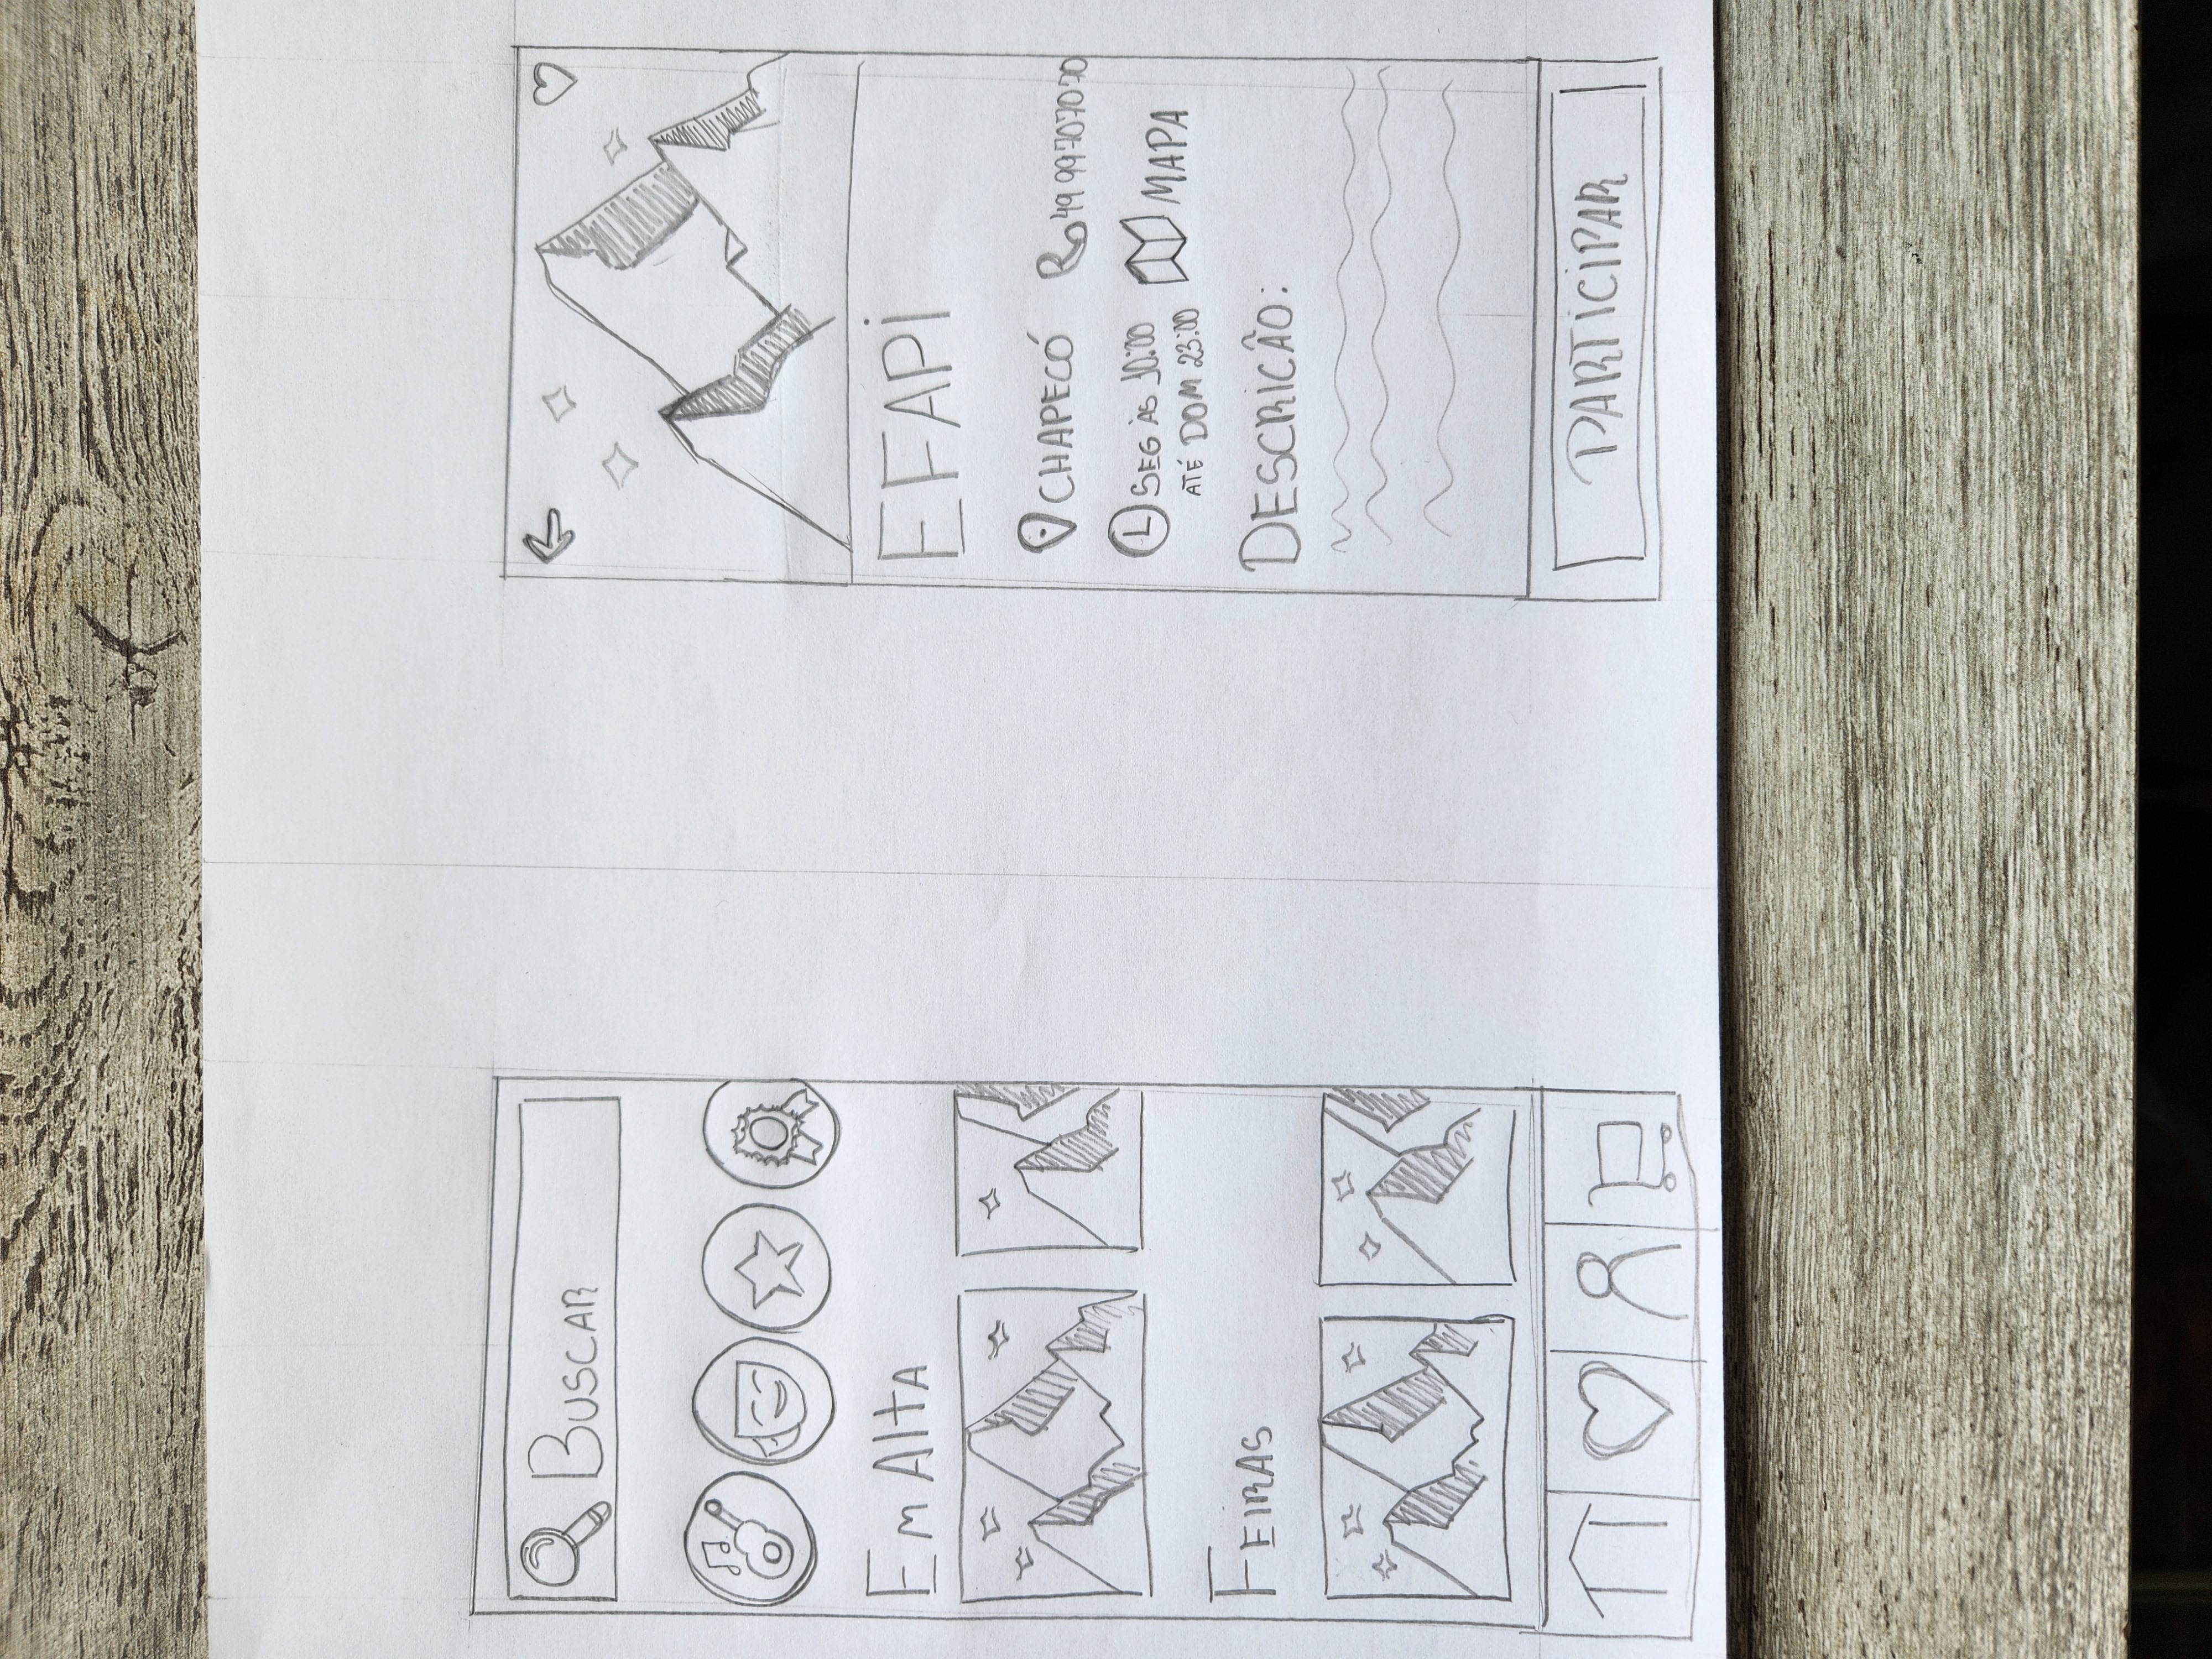 BUSCAR
EM ALTA
FEIRAS
EFAPI
CHAPECÓ
49 99707070
SEG ÀS 10:00
ATÉ DOM 23:00
MAPA
DESCRICÃO:
PARTICIPAR